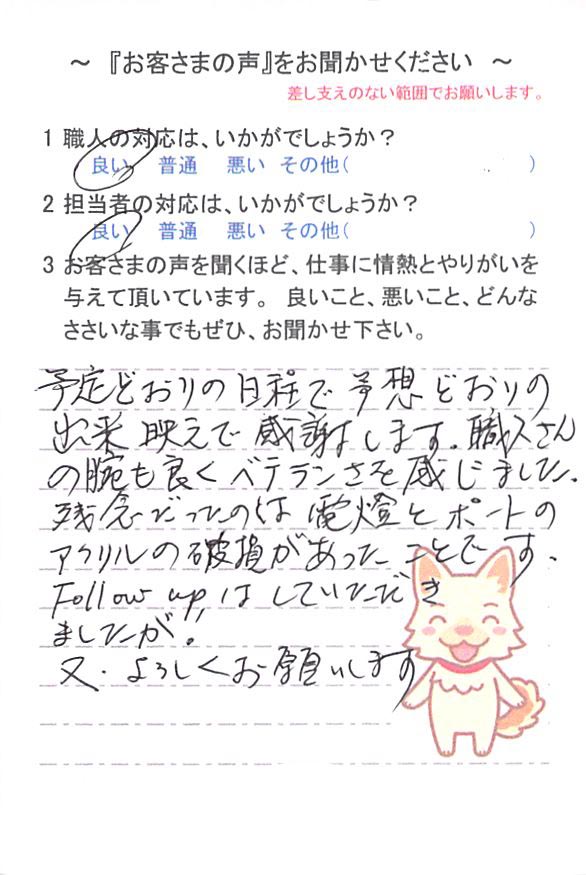 ～ 『お客さまの声』をお聞かせください ～
差し支えのない範囲でお願いします。
1 職人の対応は、いかがでしょうか？
良い 普通 悪い その他( )
2 担当者の対応は、いかがでしょうか？
良い 普通 悪い その他( )
3 お客さまの声を聞くほど、仕事に情熱とやりがいを
与えて頂いています。 良いこと、悪いこと、どんな
ささいな事でもぜひ、お聞かせ下さい。
予定どおりの日程で予想どおりの
出来映えで感謝します。職人さん
の腕も良くベテランさを感じました。
残念だったのは電燈とポートの
アクリルの破損があったことです、
Follow up はしていただき
ましたが!!
又、よろしくお願いします